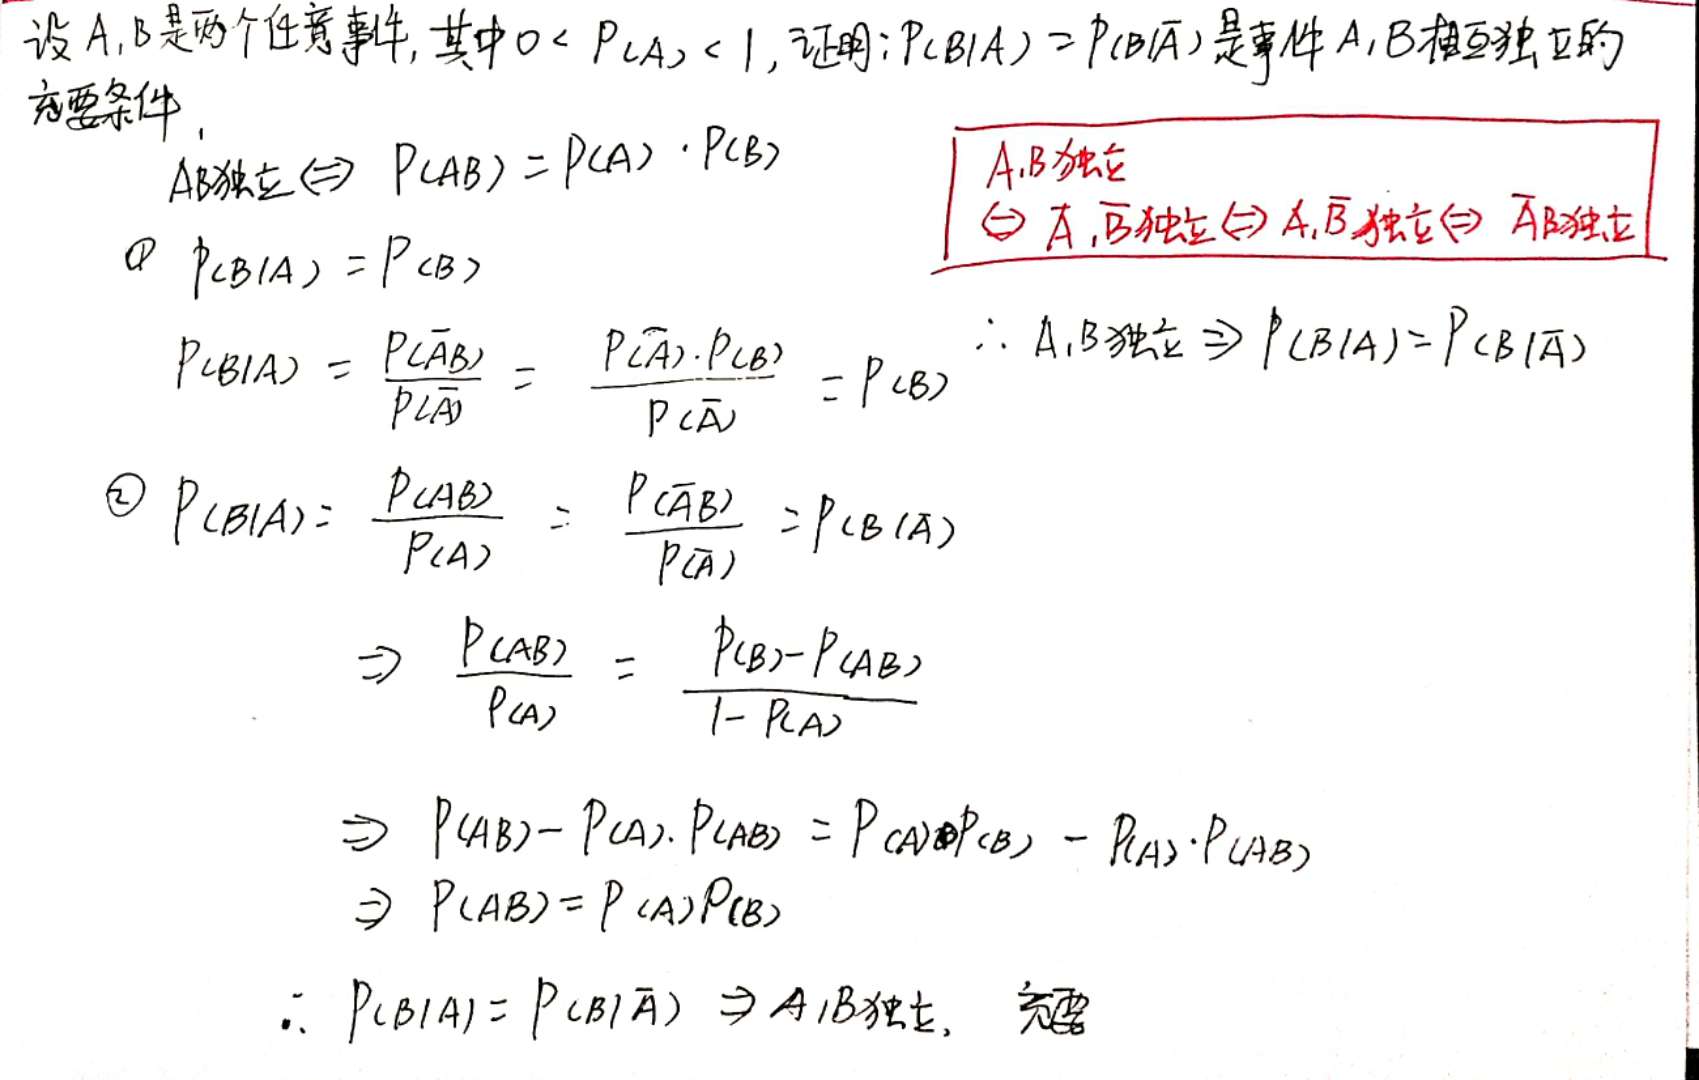 设A,B是两个任意事件,其中0<P(A)<1,证明:P(B|A)=P(B|Ā)是事件A,B相互独立的
充要条件.
AB独立⇔ P(AB)=P(A)·P(B)
A,B独立
⇔ Ā,B̄独立⇔A,B̄独立⇔ ĀB独立
① P(B|A)=P(B)
P(B|A) = P(ĀB)/P(Ā) = P(Ā)·P(B)/P(Ā) = P(B)
∴ A,B独立⇒P(B|A)=P(B|Ā)
② P(B|A)= P(AB)/P(A) = P(ĀB)/P(Ā) = P(B|Ā)
⇒ P(AB)/P(A) = P(B)-P(AB)/1-P(A)
⇒ P(AB)-P(A)·P(AB)=P(A)P(B)-P(A)·P(AB)
⇒ P(AB)=P(A)P(B)
∴ P(B|A)=P(B|Ā) ⇒A,B独立, 充要